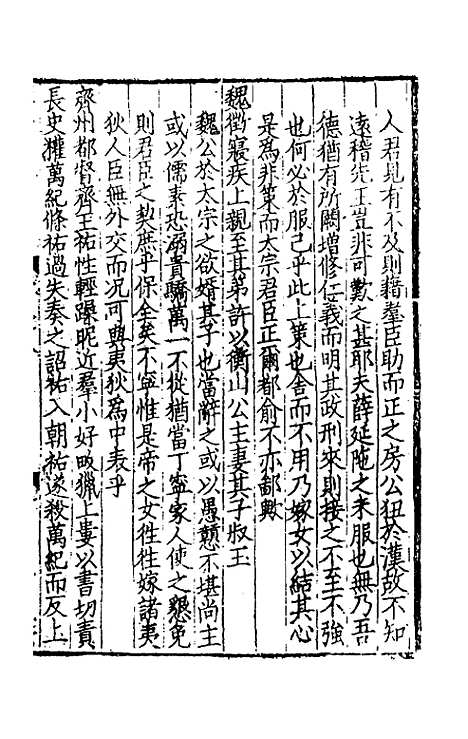 人君見有不及則藉羣臣助而正之房公狃於漢故不知
遠稽先王豈非可歎之甚耶夫薛延陁之未服也無乃吾
德猶有所闕增修仁義而明其政刑來則接之不至不強
也何必於服己乎此上策也舍而不用乃嫁女以結其心
是為非策而太宗君臣正爾都俞不亦鄙歟
魏徵寢疾上親至其弟許以衡山公主妻其子叔玉
魏公於太宗之欲婚其子也當辭之或以愚戇不堪尚主
或以儒素恐溺貴驕萬一不從猶當丁寧家人使之懇免
則君臣之契庶乎保全矣不寧惟是帝之女徃徃嫁諸夷
狄人臣無外交而况可與夷狄為中表乎
齊州都督齊王祐性輕躁昵近羣小好畋獵上婁以書切責
長史權萬紀條祐過失奏之詔祐入朝祐遂殺萬紀而反上